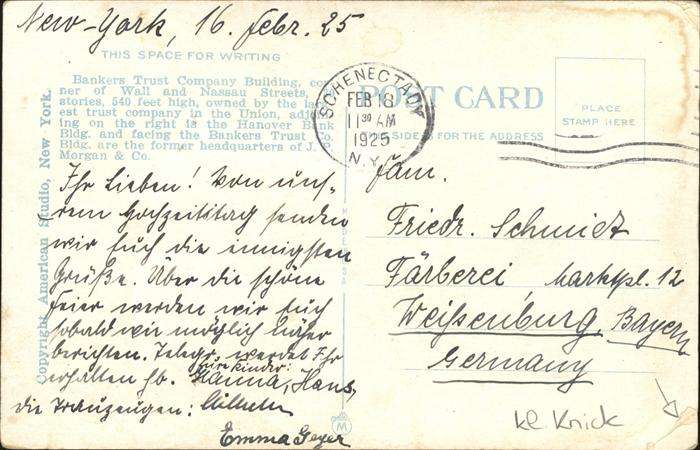 New-York, 16. Febr. 25
THIS SPACE FOR WRITING
Bankers Trust Company Building, cor-
ner of Wall and Nassau Streets,
stories, 540 feet high, owned by the la
est trust company in the Union, adjo
ing on the right is the Hanover Bank
Bldg. and facing the Bankers Trust Co.
Bldg. are the former headquarters of J.
Morgan & Co.
Copyright American Studio, New York.
SCHENECTADY
FEB 18
11 30 AM
1925
N.Y.
POST CARD
SIDE FOR THE ADDRESS
PLACE
STAMP HERE
Ihr Lieben! Von uns-
rem Hochzeitstag senden
wir Euch die innigsten
Grüße. Über die schöne
Feier werden wir Euch
sobald wie möglich näher
berichten. Telegr. werdet Ihr
erhalten hb. Eure Kinder:
Hanna, Hans,
die Trauzeugen: Wilhelm
Emma Geyer
Fam.
Friedr. Schmidt
Färberei Marktpl. 12
Weißenburg, Bayern
Germany
kl. Knick